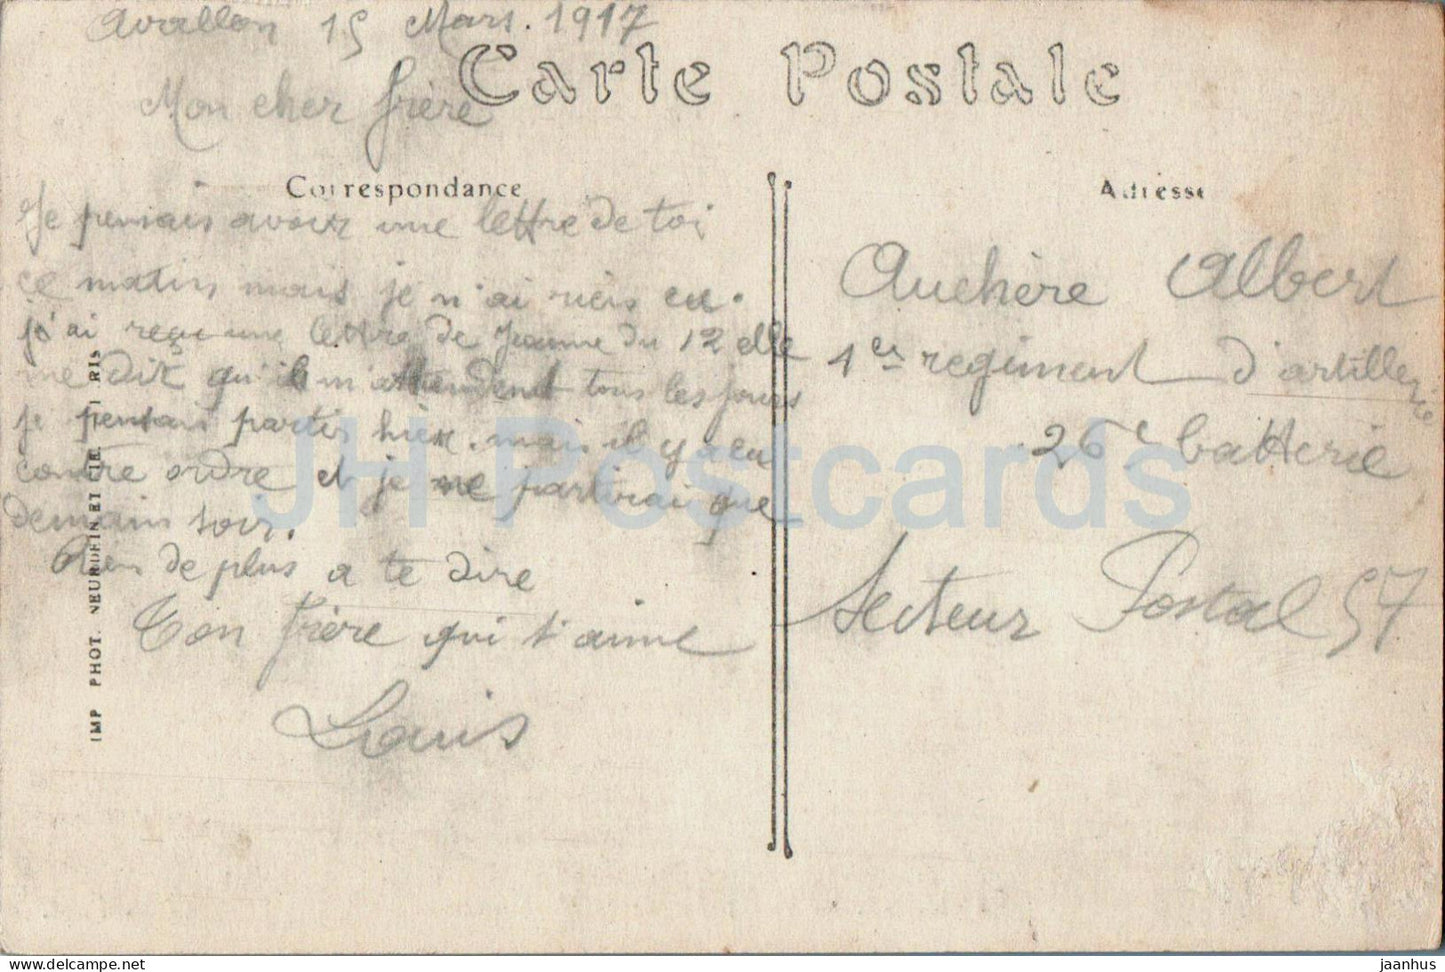 Avallon 15 Mars. 1917
Carte Postale
Mon cher frère
Correspondance
Je pensais avoir une lettre de toi
ce matin mais je n'ai rien eu.
j'ai reçu une lettre de Jeanne du 12 elle
me dit qu'ils m'attendent tous les jours
je pensais partir hier. mais il y a eu
contre ordre et je ne partirai que
demain soir.
Rien de plus a te dire
Ton frère qui t'aime
Louis
IMP PHOT. NEURDEIN ET CIE. RIS
Adresse
Auchère Albert
1er regiment d'artillerie
26e batterie
Secteur Postal 57
JH Postcards
delcampe.net
jaanhus